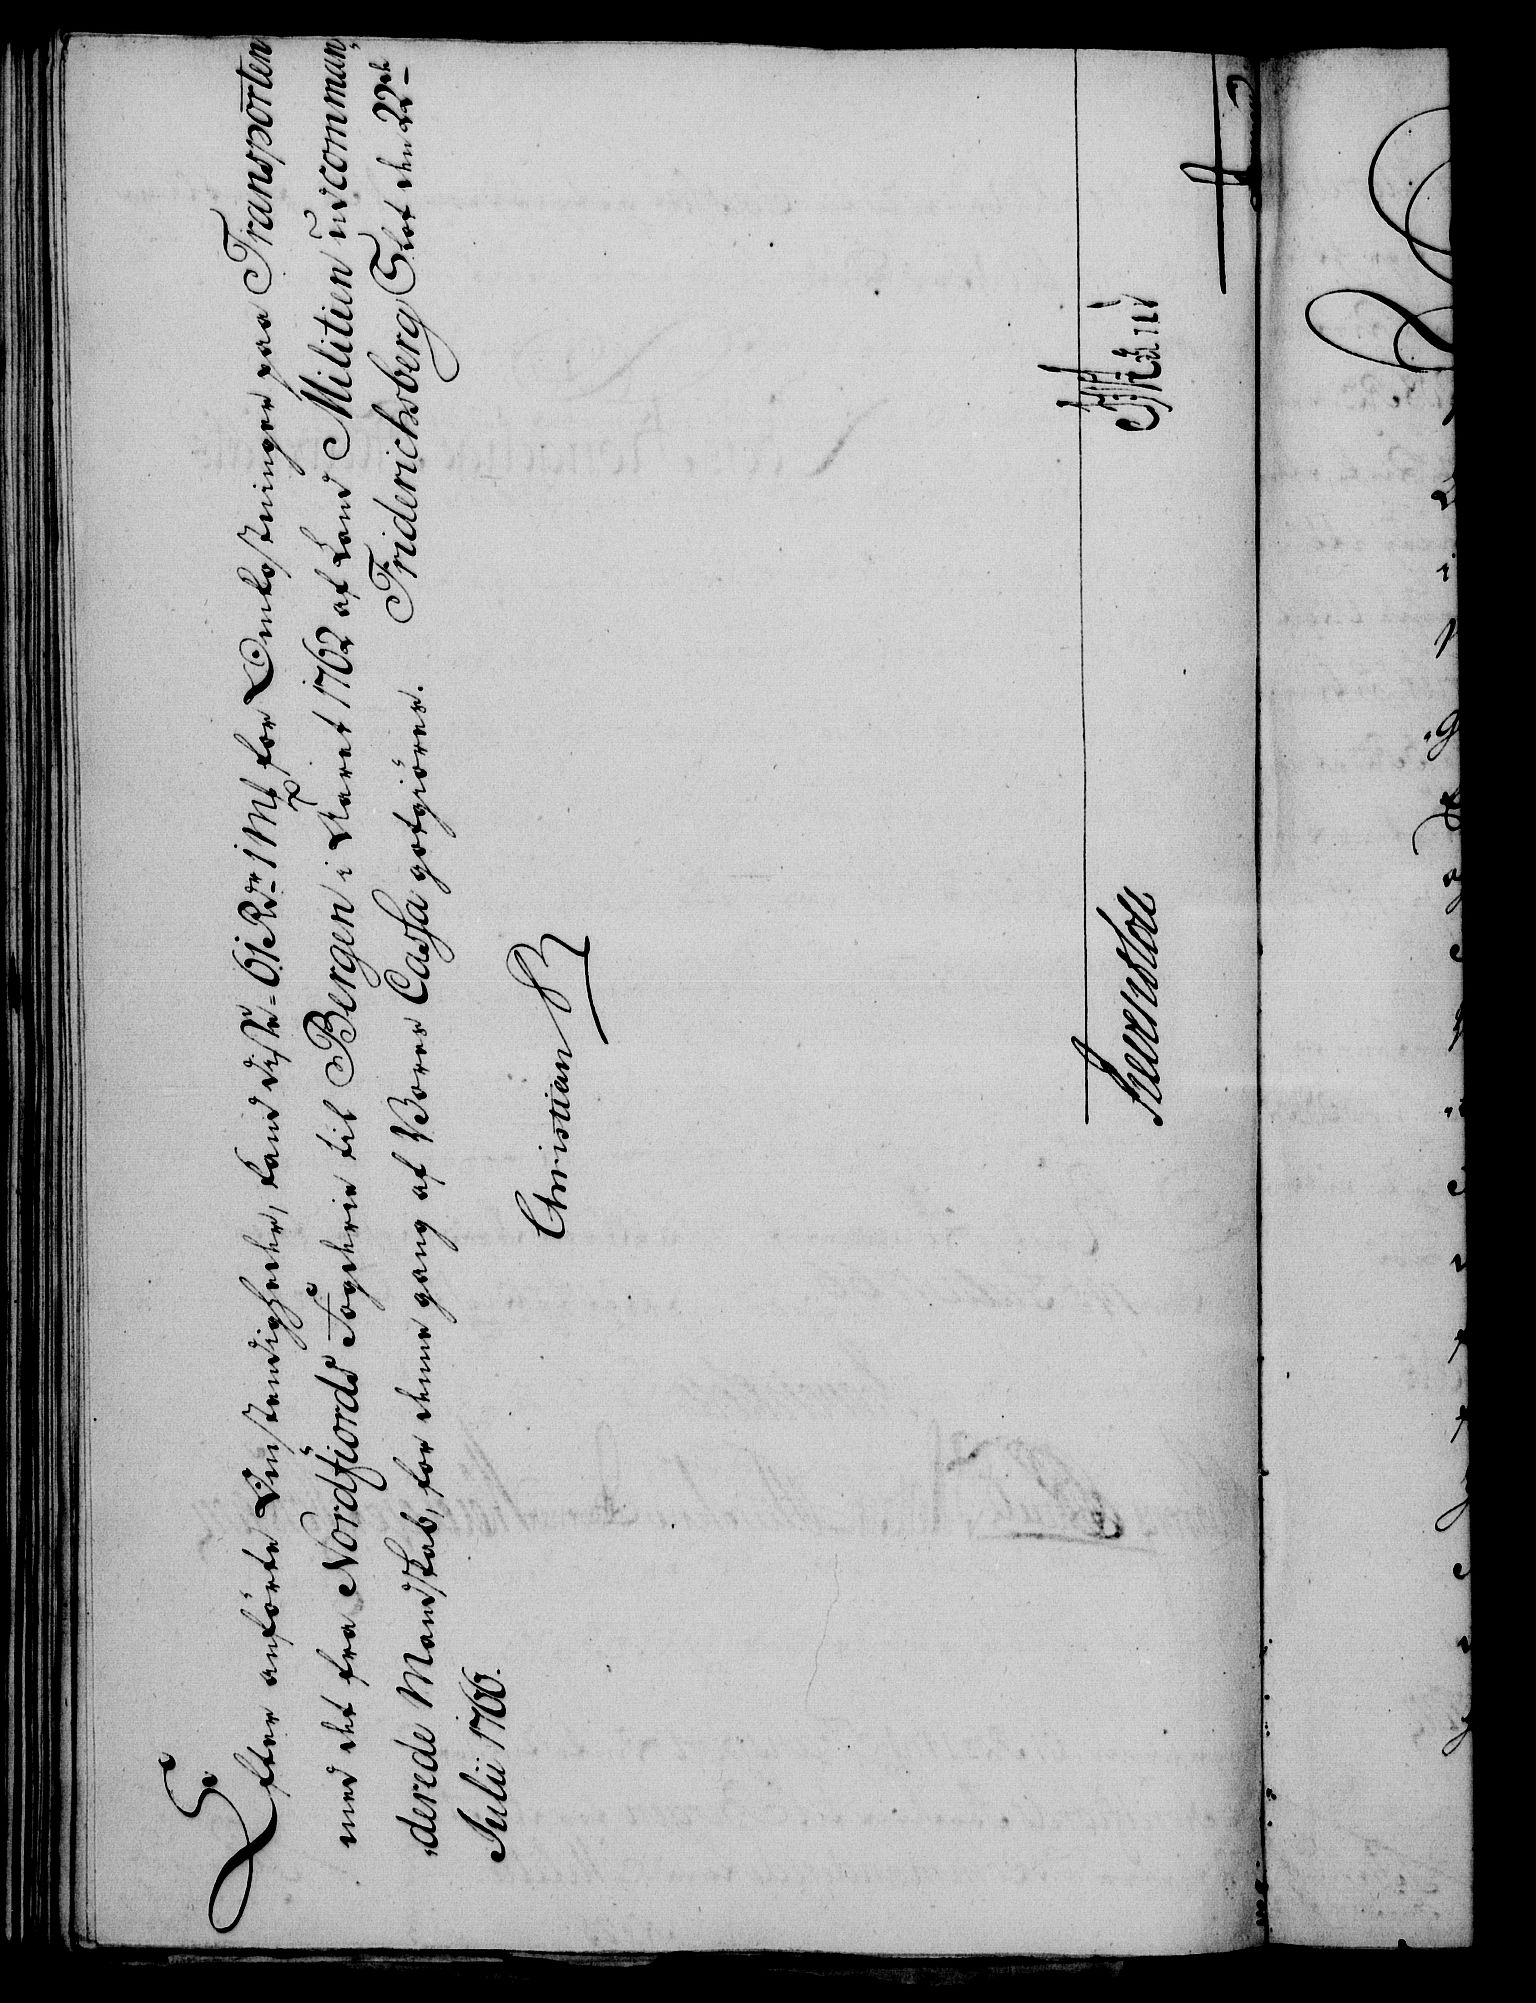 Efter anförte Omstændigheder, kand disse 61 Rdr 1 Mk for Omkostninger paa Transporten
med det fra Nordfiords Fogderie til Bergen i Aaret 1762 af Land Militien udcomman,
„derede Mandskab, for denne gang af Vores Cassa godtgiöres. Friderichsberg Slot den 22de
Julii 1766.
Christian R